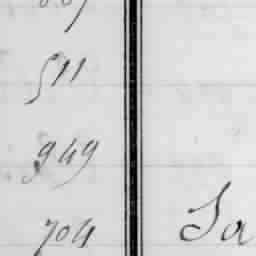 511
949
704 Sa